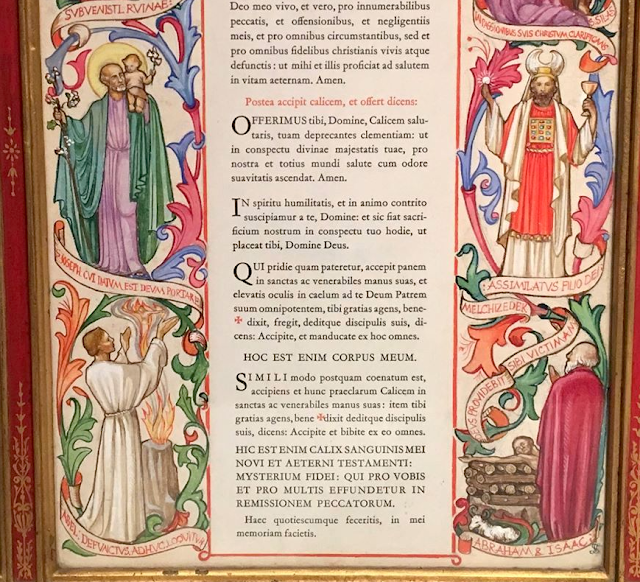 SVBVENISTI. RVINAE
JOSEPH. CVI DATVM.EST DEVM PORTARE
ABEL. DEFVNCTVS.ADHVC.LOQVITVR
Deo meo vivo, et vero, pro innumerabilibus
peccatis, et offensionibus, et negligentiis
meis, et pro omnibus circumstantibus, sed et
pro omnibus fidelibus christianis vivis atque
defunctis : ut mihi et illis proficiat ad salutem
in vitam aeternam. Amen.
Postea accipit calicem, et offert dicens:
OFFERIMUS tibi, Domine, Calicem salu-
taris, tuam deprecantes clementiam: ut
in conspectu divinae majestatis tuae, pro
nostra et totius mundi salute cum odore
suavitatis ascendat. Amen.
IN spiritu humilitatis, et in animo contrito
suscipiamur a te, Domine: et sic fiat sacri-
ficium nostrum in conspectu tuo hodie, ut
placeat tibi, Domine Deus.
QUI pridie quam pateretur, accepit panem
in sanctas ac venerabiles manus suas, et
elevatis oculis in caelum ad te Deum Patrem
suum omnipotentem, tibi gratias agens, bene-
✠ dixit, fregit, deditque discipulis suis, di-
cens: Accipite, et manducate ex hoc omnes.
HOC EST ENIM CORPUS MEUM.
SIMILI modo postquam coenatum est,
accipiens et hunc praeclarum Calicem in
sanctas ac venerabiles manus suas : item tibi
gratias agens, bene ✠dixit deditque discipulis
suis, dicens: Accipite et bibite ex eo omnes.
HIC EST ENIM CALIX SANGUINIS MEI
NOVI ET AETERNI TESTAMENTI:
MYSTERIUM FIDEI: QUI PRO VOBIS
ET PRO MULTIS EFFUNDETUR IN
REMISSIONEM PECCATORUM.
Haec quotiescumque feceritis, in mei
memoriam facietis.
SVIS CHRISTVM CLARIFICANS
ASSIMILATVS FILIO DEI
MELCHIZEDEK
PROVIDEBIT SIBI VICTIMAM
ABRAHAM & ISAAC